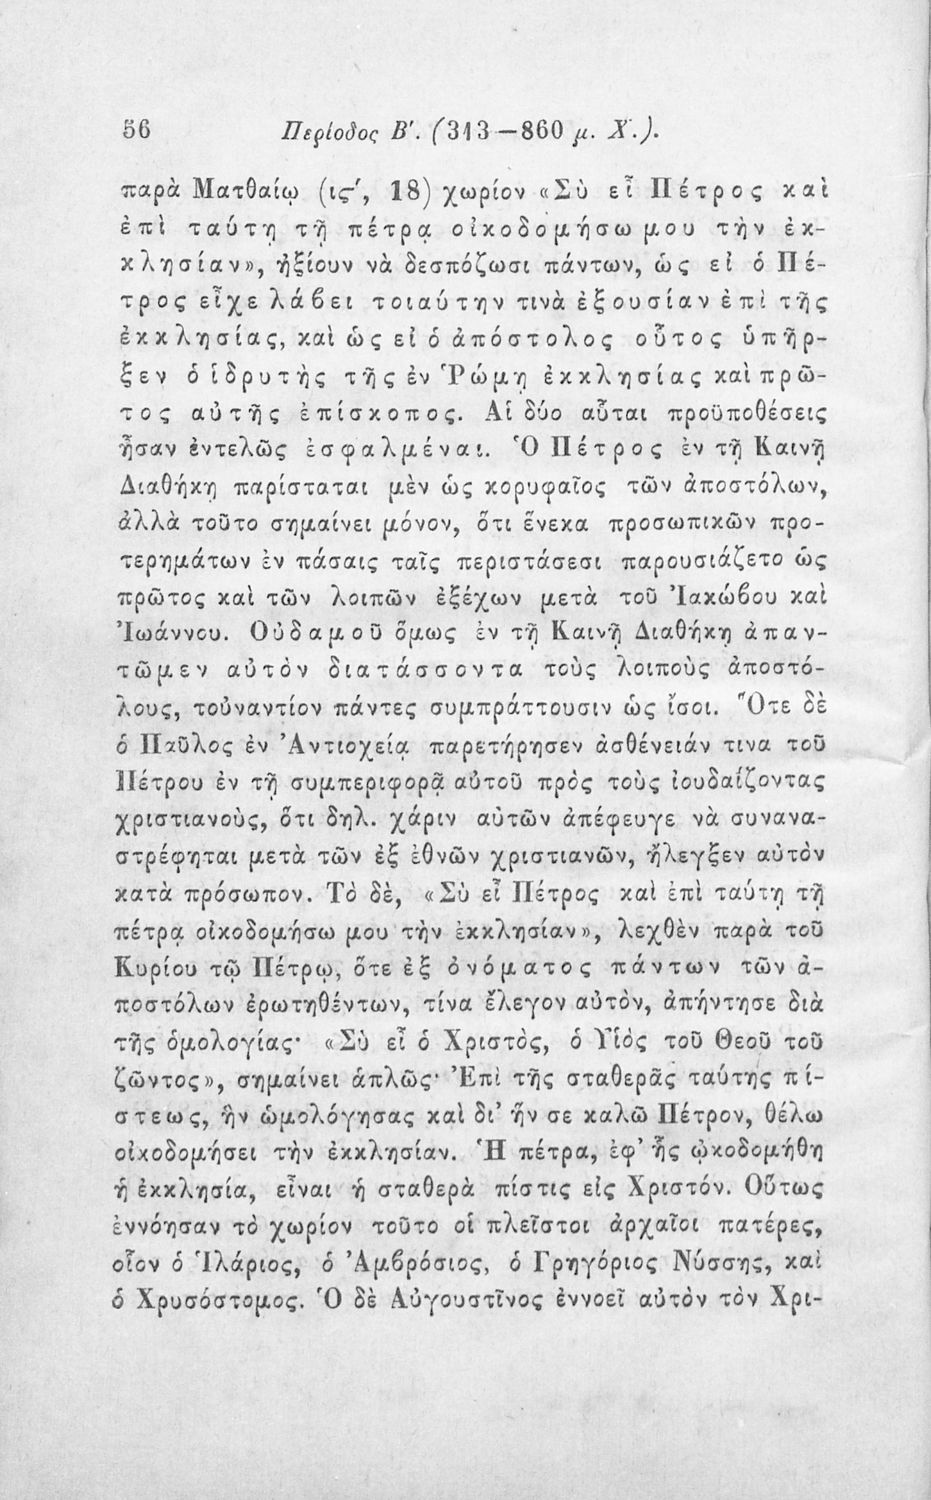 56 Περίοδος Β'. (313—860 μ. Χ.).
παρὰ Ματθαίῳ (ις', 18) χωρίον «Σὺ εἶ Πέτρος καὶ
ἐπὶ ταύτῃ τῇ πέτρᾳ οἰκοδομήσω μου τὴν ἐκ-
κλησίαν», ἠξίουν νὰ δεσπόζωσι πάντων, ὡς εἰ ὁ Πέ-
τρος εἶχε λάβει τοιαύτην τινὰ ἐξουσίαν ἐπὶ τῆς
ἐκκλησίας, καὶ ὡς εἰ ὁ ἀπόστολος οὗτος ὑπῆρ-
ξεν ὁ ἱδρυτὴς τῆς ἐν Ῥώμῃ ἐκκλησίας καὶ πρῶ-
τος αὐτῆς ἐπίσκοπος. Αἱ δύο αὗται προϋποθέσεις
ἦσαν ἐντελῶς ἐσφαλμέναι. Ὁ Πέτρος ἐν τῇ Καινῇ
Διαθήκῃ παρίσταται μὲν ὡς κορυφαῖος τῶν ἀποστόλων,
ἀλλὰ τοῦτο σημαίνει μόνον, ὅτι ἕνεκα προσωπικῶν προ-
τερημάτων ἐν πάσαις ταῖς περιστάσεσι παρουσιάζετο ὡς
πρῶτος καὶ τῶν λοιπῶν ἐξέχων μετὰ τοῦ Ἰακώβου καὶ
Ἰωάννου. Οὐδαμοῦ ὅμως ἐν τῇ Καινῇ Διαθήκῃ ἀπαν-
τῶμεν αὐτὸν διατάσσοντα τοὺς λοιποὺς ἀποστό-
λους, τοὐναντίον πάντες συμπράττουσιν ὡς ἴσοι. Ὅτε δὲ
ὁ Παῦλος ἐν Ἀντιοχείᾳ παρετήρησεν ἀσθένειάν τινα τοῦ
Πέτρου ἐν τῇ συμπεριφορᾷ αὐτοῦ πρὸς τοὺς ἰουδαΐζοντας
χριστιανοὺς, ὅτι δηλ. χάριν αὐτῶν ἀπέφευγε νὰ συνανα-
στρέφηται μετὰ τῶν ἐξ ἐθνῶν χριστιανῶν, ἤλεγξεν αὐτὸν
κατὰ πρόσωπον. Τὸ δὲ, «Σὺ εἶ Πέτρος καὶ ἐπὶ ταύτῃ τῇ
πέτρᾳ οἰκοδομήσω μου τὴν ἐκκλησίαν», λεχθὲν παρὰ τοῦ
Κυρίου τῷ Πέτρῳ, ὅτε ἐξ ὀνόματος πάντων τῶν ἀ-
ποστόλων ἐρωτηθέντων, τίνα ἔλεγον αὐτὸν, ἀπήντησε διὰ
τῆς ὁμολογίας· «Σὺ εἶ ὁ Χριστὸς, ὁ Υἱὸς τοῦ Θεοῦ τοῦ
ζῶντος», σημαίνει ἁπλῶς· Ἐπὶ τῆς σταθερᾶς ταύτης πί-
στεως, ἣν ὡμολόγησας καὶ δι' ἥν σε καλῶ Πέτρον, θέλω
οἰκοδομήσει τὴν ἐκκλησίαν. Ἡ πέτρα, ἐφ' ἧς ᾠκοδομήθη
ἡ ἐκκλησία, εἶναι ἡ σταθερὰ πίστις εἰς Χριστόν. Οὕτως
ἐννόησαν τὸ χωρίον τοῦτο οἱ πλεῖστοι ἀρχαῖοι πατέρες,
οἷον ὁ Ἱλάριος, ὁ Ἀμβρόσιος, ὁ Γρηγόριος Νύσσης, καὶ
ὁ Χρυσόστομος. Ὁ δὲ Αὐγουστῖνος ἐννοεῖ αὐτὸν τὸν Χρι-